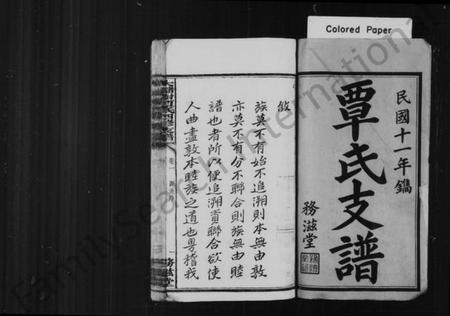 Colored Paper
民國十一年鐫
覃氏支譜
務滋堂
敘
族莫不有始不追溯則本無由敦
亦莫不有分不聯合則族無由睦
譜也者所以便追溯資聯合欲使
人曲盡敦本睦族之道也粵稽我
卷一
務滋堂
FamilySearch International